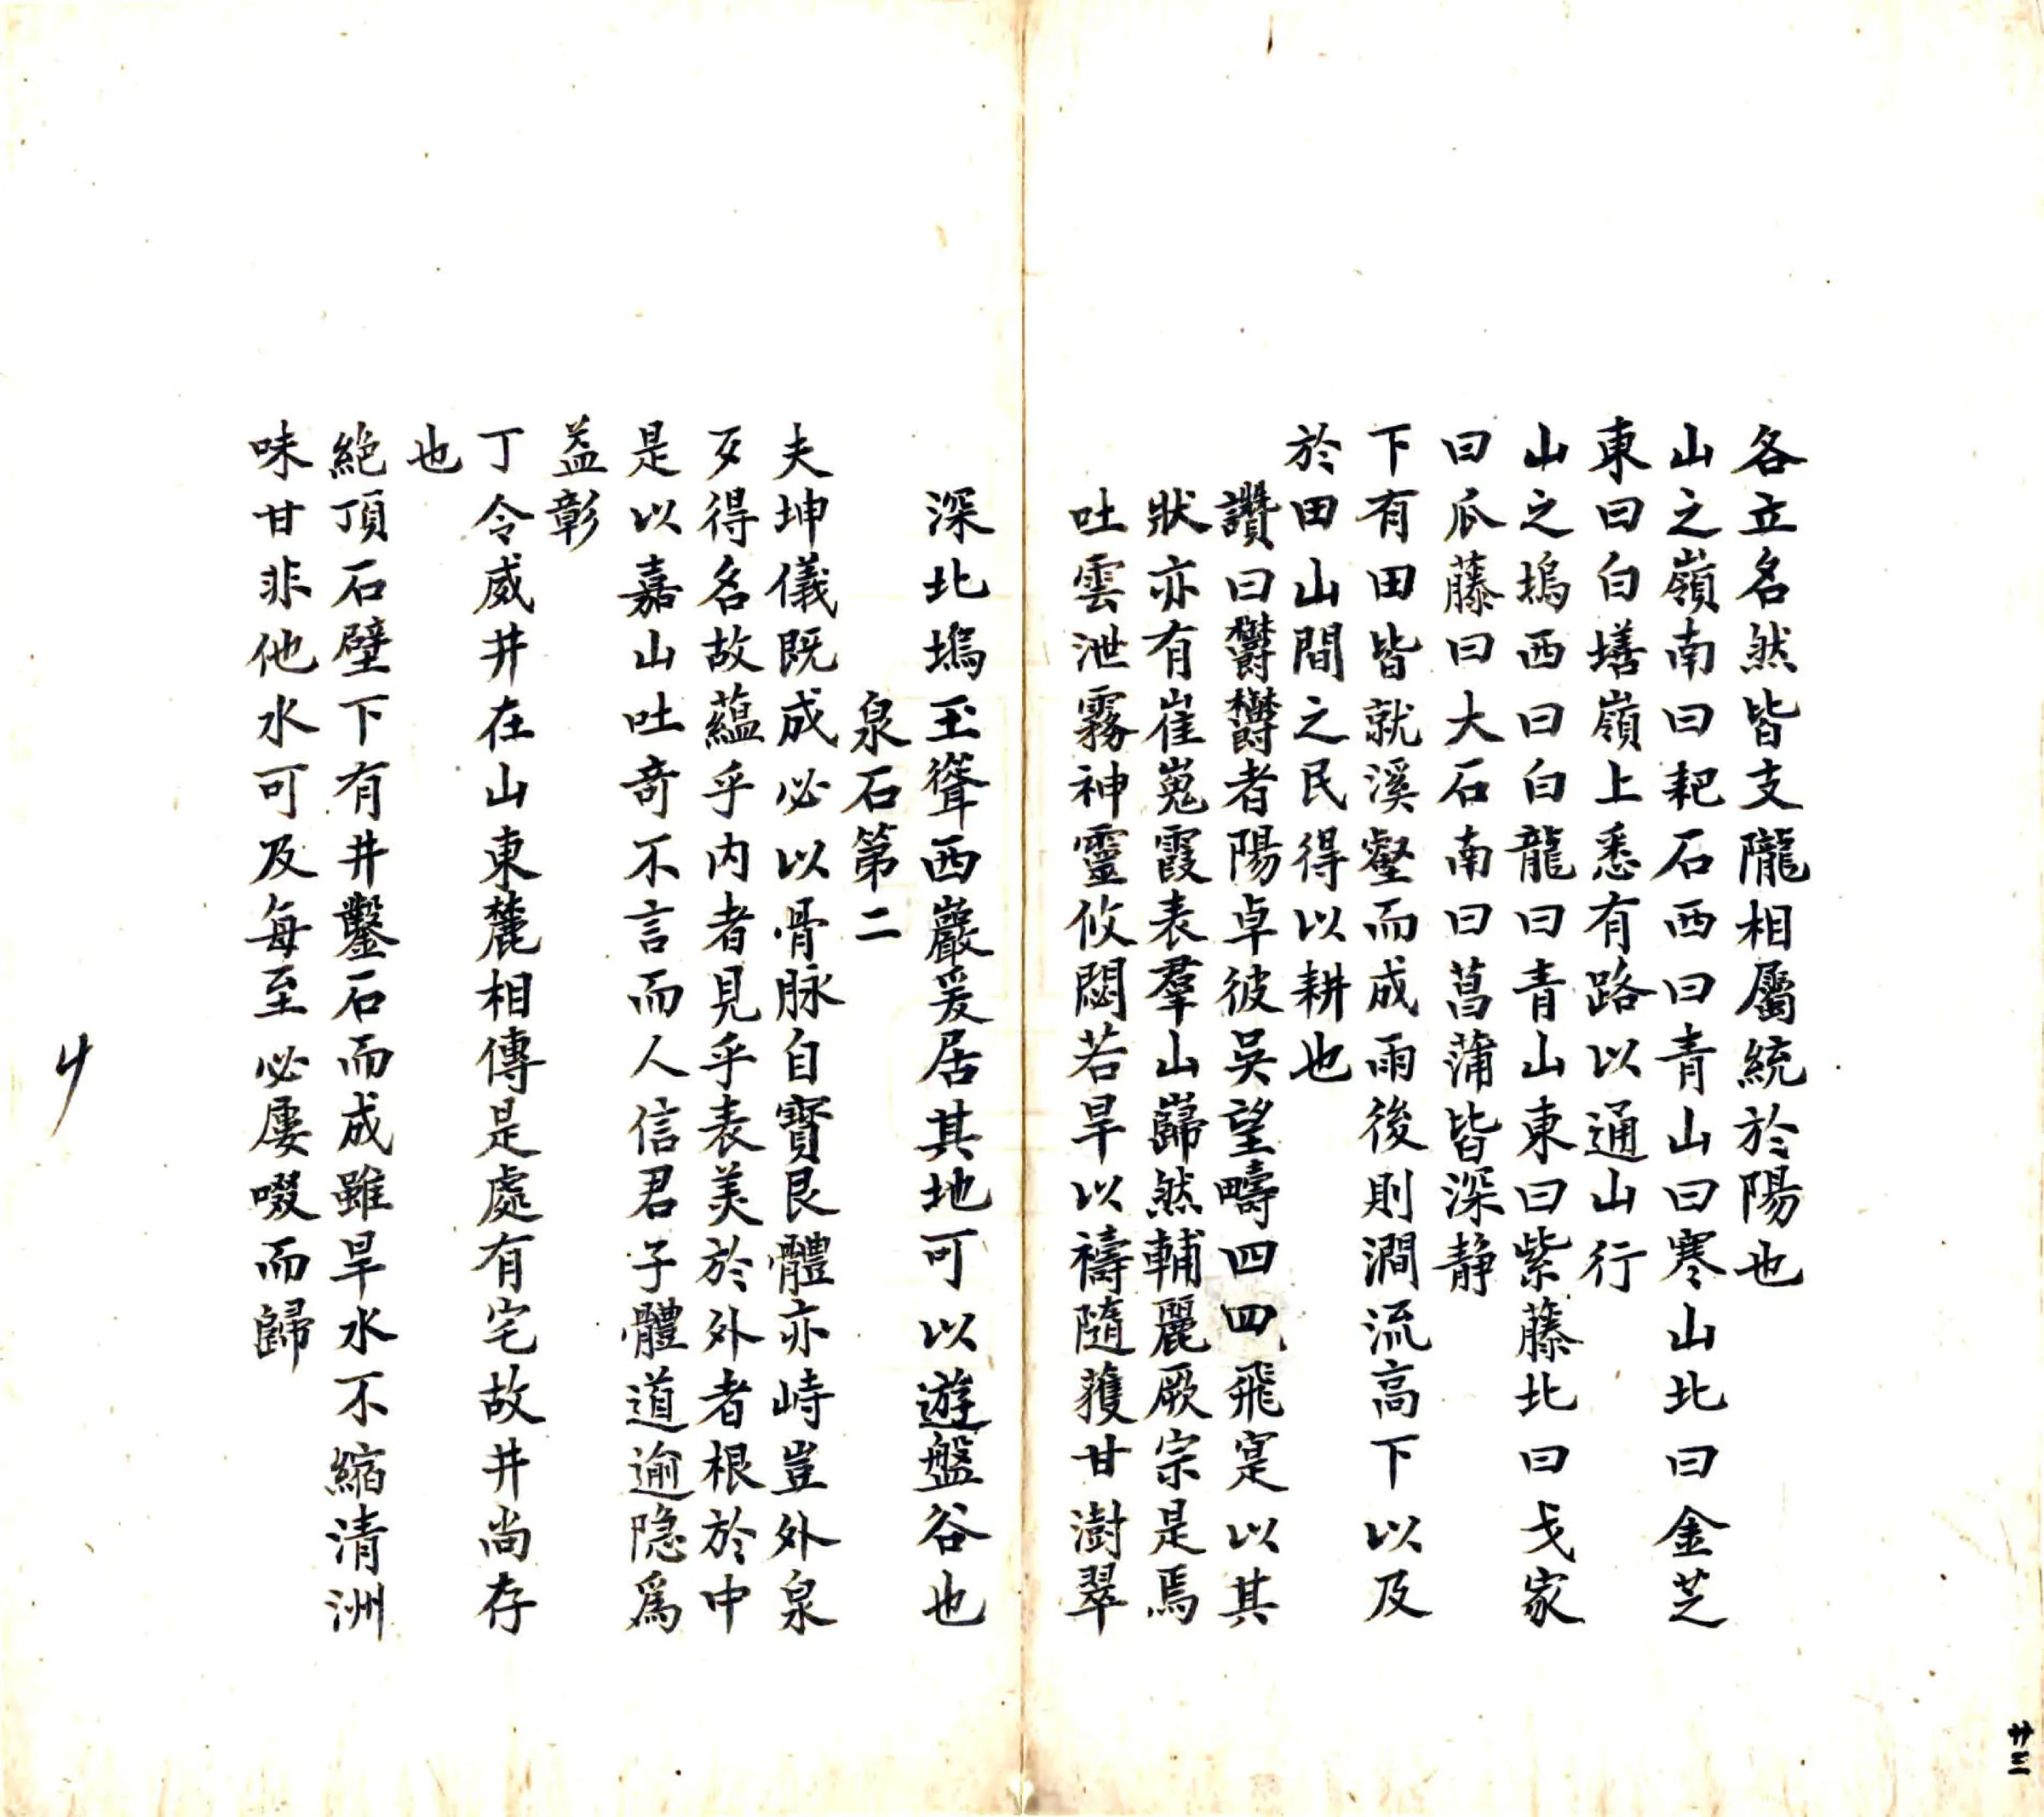 各立名然皆支隴相屬統於陽也
山之嶺南曰耙石西曰青山曰寒山北曰金芝
東曰白墡嶺上悉有路以通山行
山之塢西曰白龍曰青山東曰紫藤北曰戈家
曰瓜藤曰大石南曰菖蒲皆深静
下有田皆就溪壑而成雨後則澗流高下以及
於田山間之民得以耕也
讚曰欝欝者陽卓彼吳望疇四四飛寔以其
狀亦有崔嵬霞表羣山巋然輔麗厥宗是焉
吐雲泄霧神靈攸閟若旱以禱隨獲甘澍翠
深北塢玉聳西巖爰居其地可以遊盤谷也
泉石第二
夫坤儀既成必以骨脉自寳艮體亦峙豈外泉
歹得名故藴乎内者見乎表美於外者根於中
是以嘉山吐奇不言而人信君子體道逾隐爲
益彰
丁令威井在山東麓相傳是處有宅故井尚存
也
絶頂石壁下有井鑿石而成雖旱水不縮清洲
味甘非他水可及每至必屢啜而歸
廿三